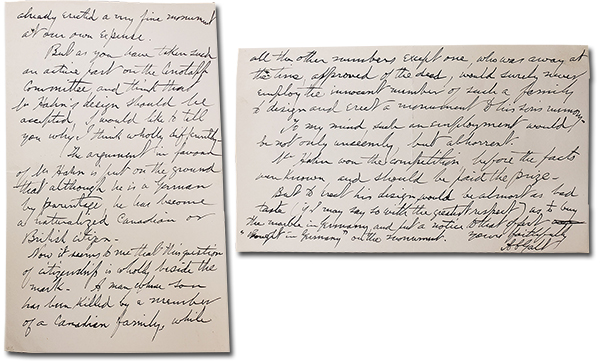 already erected a very fine monument
at our own expense.
But as you have taken such
an active part on the Cenotaph
Committee, and think that
Mr Hahn's design should be
accepted, I would like to tell
you why I think wholly differently.
The argument in favour
of Mr. Hahn is put on the ground
that although he is a German
by parentage, he has become
a naturalized Canadian or
British citizen.
Now it seems to me that this question
of citizenship is wholly beside the
mark. A man whose son
has been killed by a member
of a Canadian family, while
all the other members except one, who was away at
the time approved of the deed, would surely never
employ the innocent member of such a family
to design and erect a monument to his son's memory.
To my mind such an employment would
be not only unseemly, but abhorrent.
Mr Hahn won the competition, before the facts
were known, and should be paid the prize.
But to erect his design would be almost as bad
taste (if I may say so with the greatest respect) as to buy
the marble in Germany and put a notice to that effect
"Bought in Germany" on the monument.
Yours faithfully
A C Galt